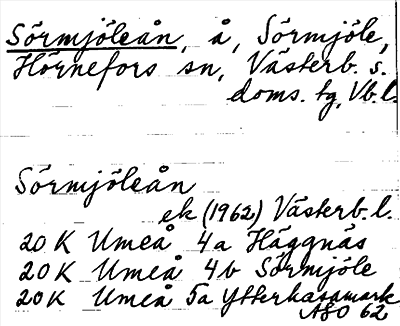 Sörmjöleån, å, Sörmjöle,
Hörnefors sn, Västerb. s.
doms. tg, Vb. l.
Sörmjöleån
ek (1962) Västerb. l.
20 K Umeå 4a Häggnäs
20 K Umeå 4b Sörmjöle
20K Umeå 5a Ytterhasamark
ÅGO 62